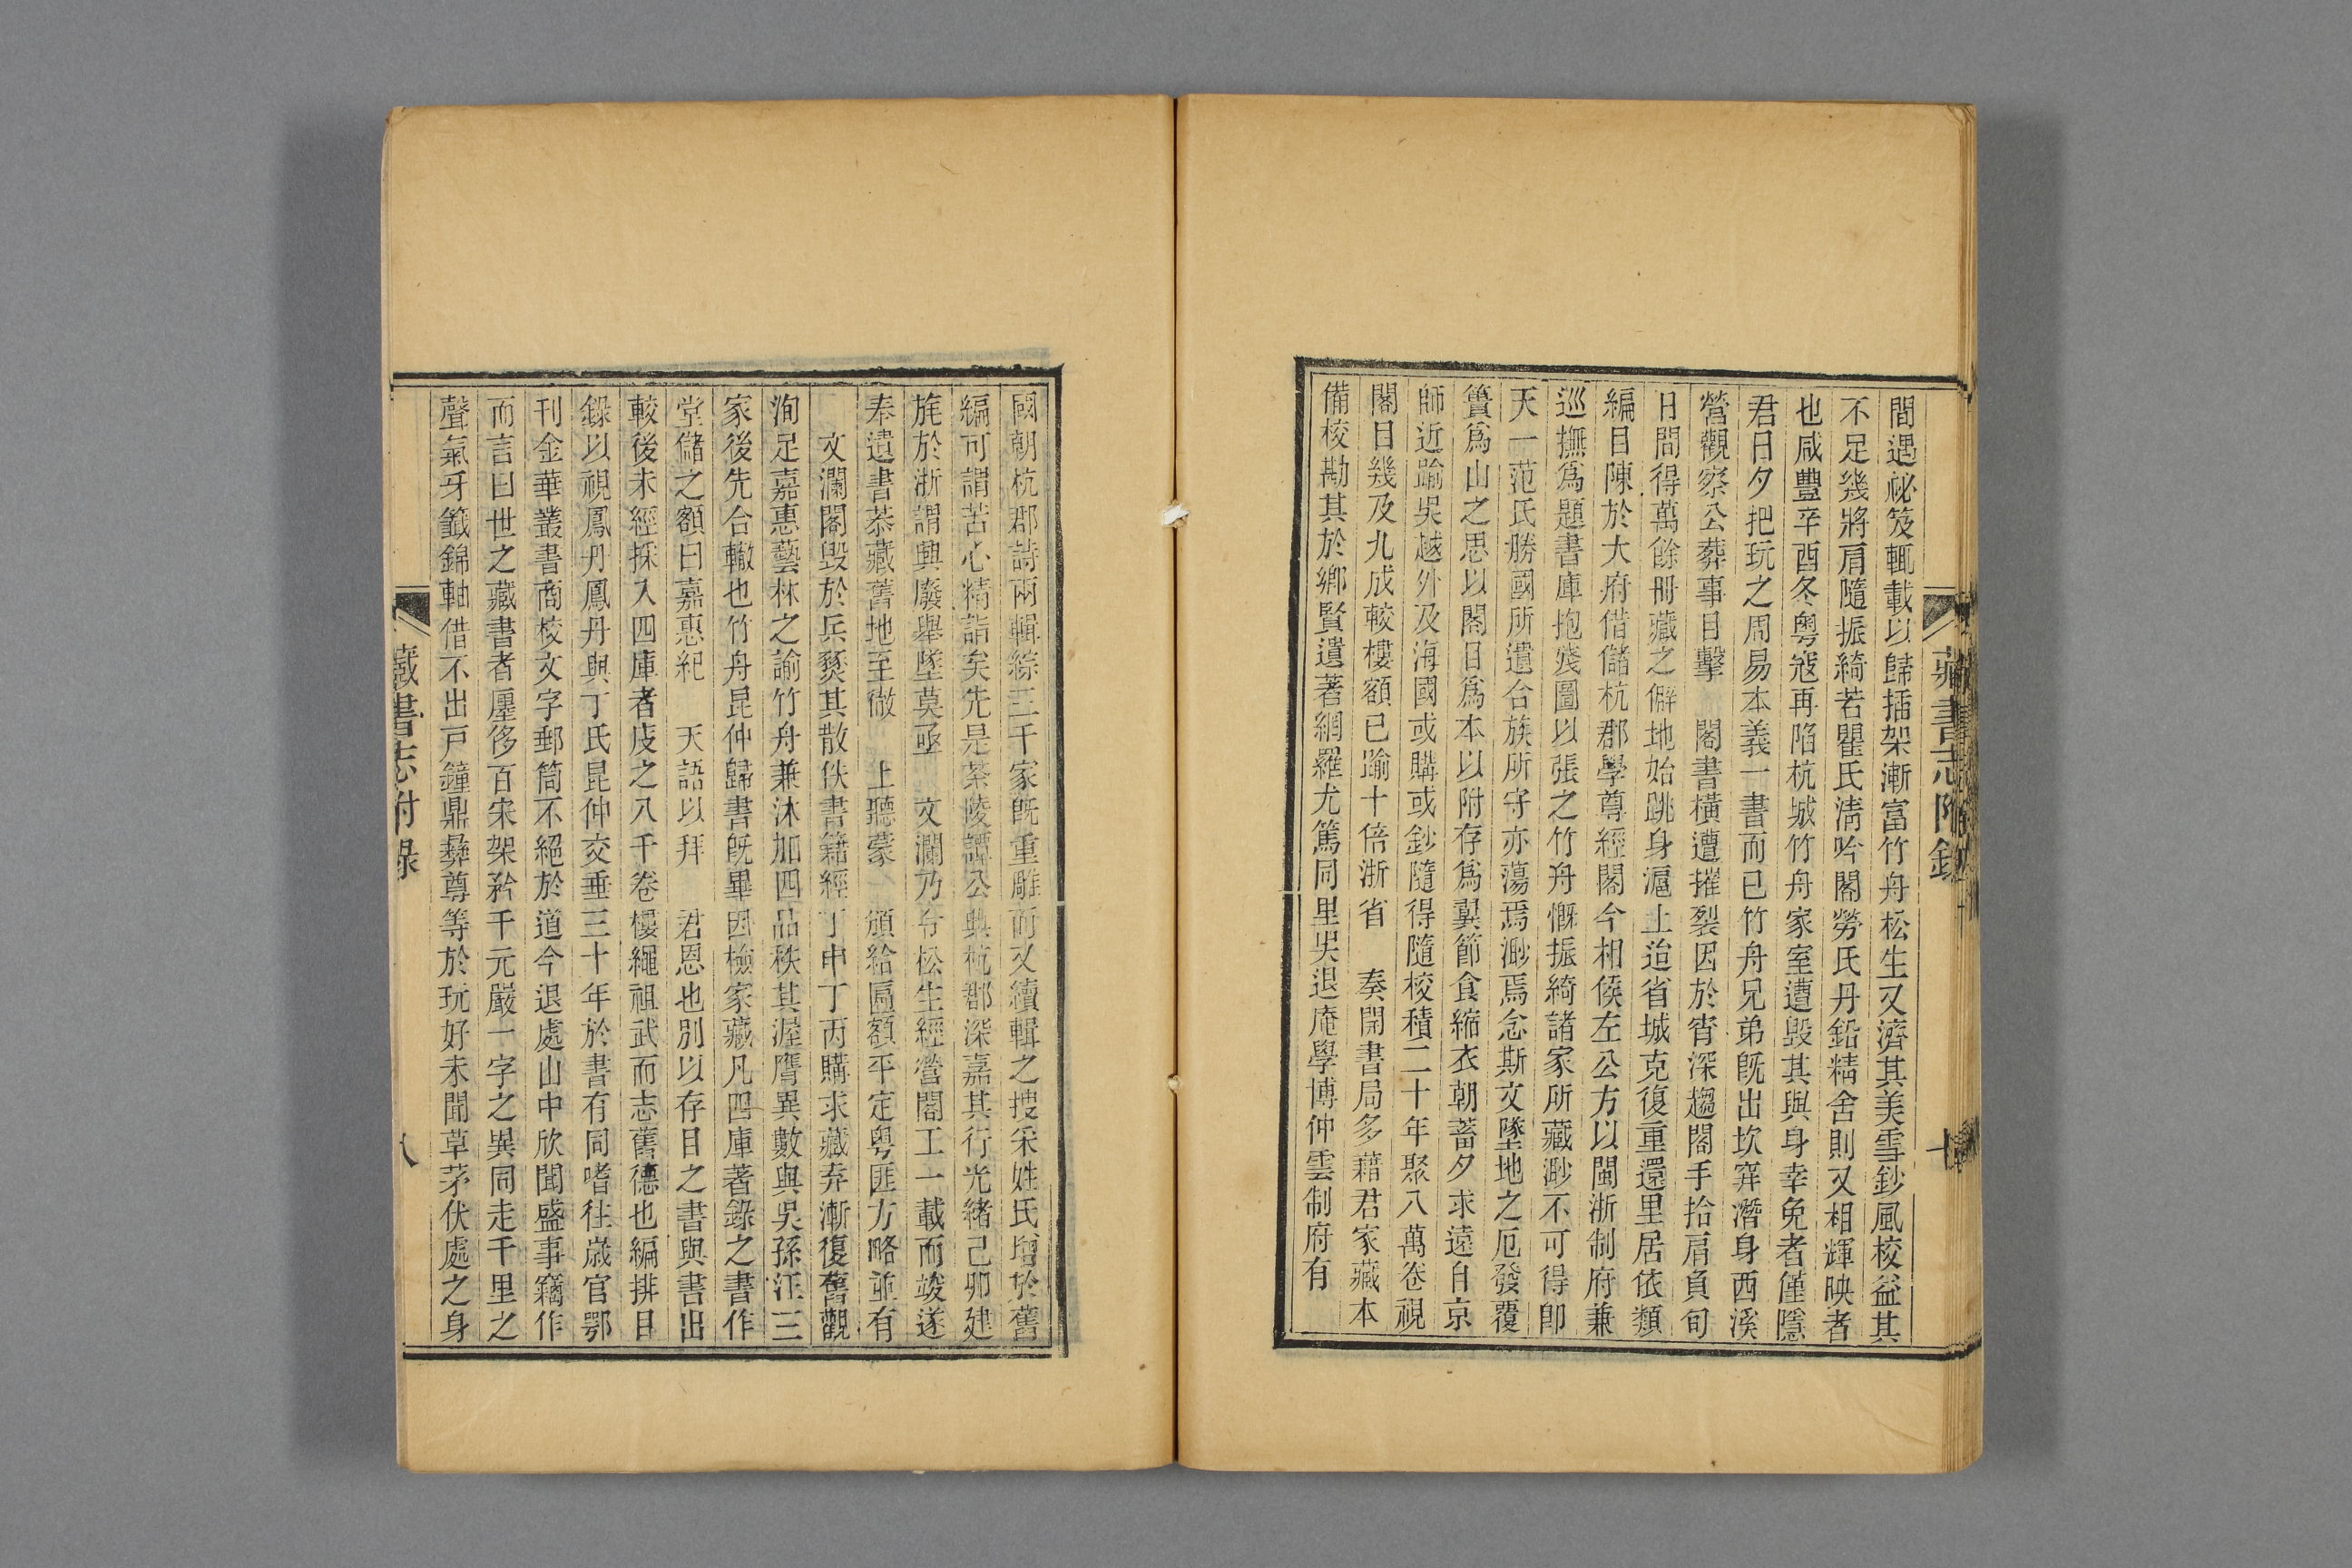 間遇祕笈輒載以歸插架漸富竹舟松生又濟其美雪鈔風校益其
不足幾將肩隨振綺若瞿氏淸吟閣勞氏丹鉛精舍則又相輝映者
也咸豐辛酉冬粤寇再陷杭城竹舟家室遭毀其與身幸免者僅隱
君日夕把玩之周易本義一書而已竹舟兄弟旣出坎穽潛身西溪
營觀察公葬事目擊　閣書橫遭摧裂因於宵深趨閣手拾肩負旬
日間得萬餘冊藏之僻地始跳身滬上迨省城克復重還里居依類
編目陳於大府借儲杭郡學尊經閣今相侯左公方以閩浙制府兼
巡撫爲題書庫抱殘圖以張之竹舟慨振綺諸家所藏渺不可得卽
天一范氏勝國所遺合族所守亦蕩焉渺焉念斯文墜地之厄發覆
簣爲山之思以閣目爲本以附存爲翼節食縮衣朝蓄夕求遠自京
師近踰吳越外及海國或購或鈔隨得隨校積二十年聚八萬卷視
閣目幾及九成較樓額已踰十倍浙省　奏開書局多藉君家藏本
備校勘其於鄉賢遺著網羅尤篤同里吳退庵學博仲雲制府有
藏書志附錄
國朝杭郡詩兩輯綜三千家旣重雕而又續輯之搜采姓氏增於舊
編可謂苦心精詣矣先是茶陵譚公典杭郡深嘉其行光緒己卯建
旄於浙謂興廢舉墜莫亟　文瀾乃令松生經營閣工一載而竣遂
奉遺書恭藏舊地至徹　上聽蒙　頒給匾額平定粤匪方略並有
文瀾閣毀於兵燹其散佚書籍經丁申丁丙購求藏弆漸復舊觀
洵足嘉惠藝林之諭竹舟兼沐加四品秩其渥膺異數與吳孫汪三
家後先合轍也竹舟昆仲歸書旣畢因檢家藏凡四庫著錄之書作
堂儲之額曰嘉惠紀　天語以拜　君恩也別以存目之書與書出
較後未經採入四庫者庋之八千卷樓繩祖武而志舊德也編排目
錄以視鳳丹鳳丹與丁氏昆仲交垂三十年於書有同嗜往歲官鄂
刊金華叢書商校文字郵筒不絕於道今退處山中欣聞盛事竊作
而言曰世之藏書者廛侈百宋架矜千元嚴一字之異同走千里之
聲氣牙籤錦軸借不出戸鐘鼎彝尊等於玩好未聞草茅伏處之身
藏書志附錄
八